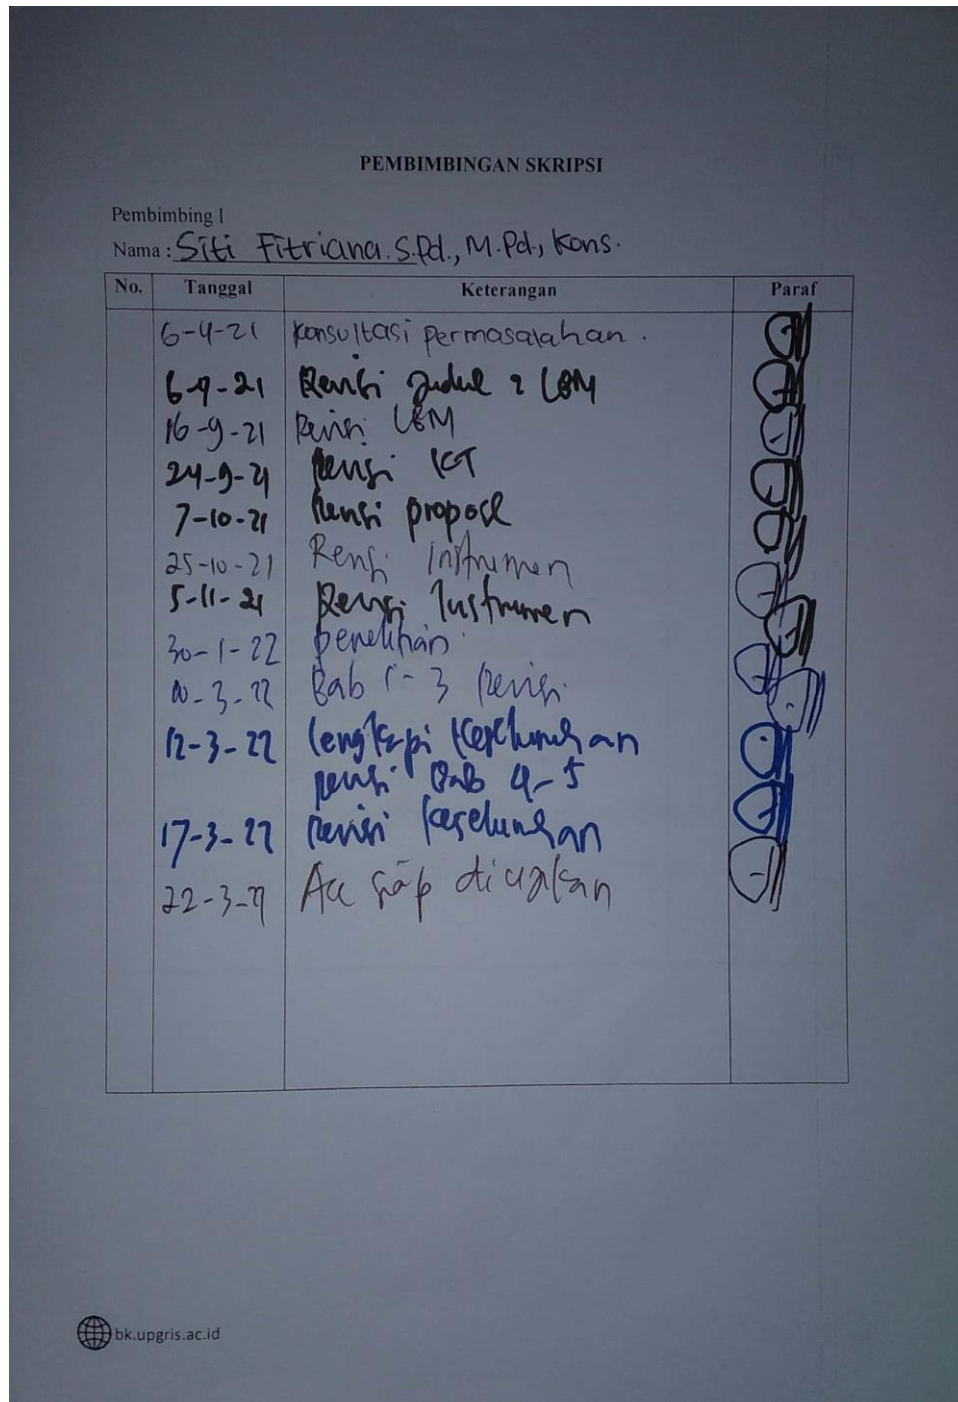 PEMBIMBINGAN SKRIPSI
Pembimbing I
Nama : Siti Fitriana. S.Pd., M.Pd., Kons.
No. Tanggal Keterangan Paraf
6-4-21 Konsultasi permasalahan.
6-9-21 Revisi Judul & LBM
16-9-21 Revisi LBM
24-9-21 Revisi
7-10-21 Revisi proposl
25-10-21 Revisi Instrumen
5-11-21 Revisi Instrumen
30-1-22 penelitian
-3-22 Bab 1-3 Revisi
12-3-22 lengkapi keseluruhan
revisi Bab 4-5
17-3-22 revisi keseluruhan
22-3-22 Acc siap diujikan
bk.upgris.ac.id